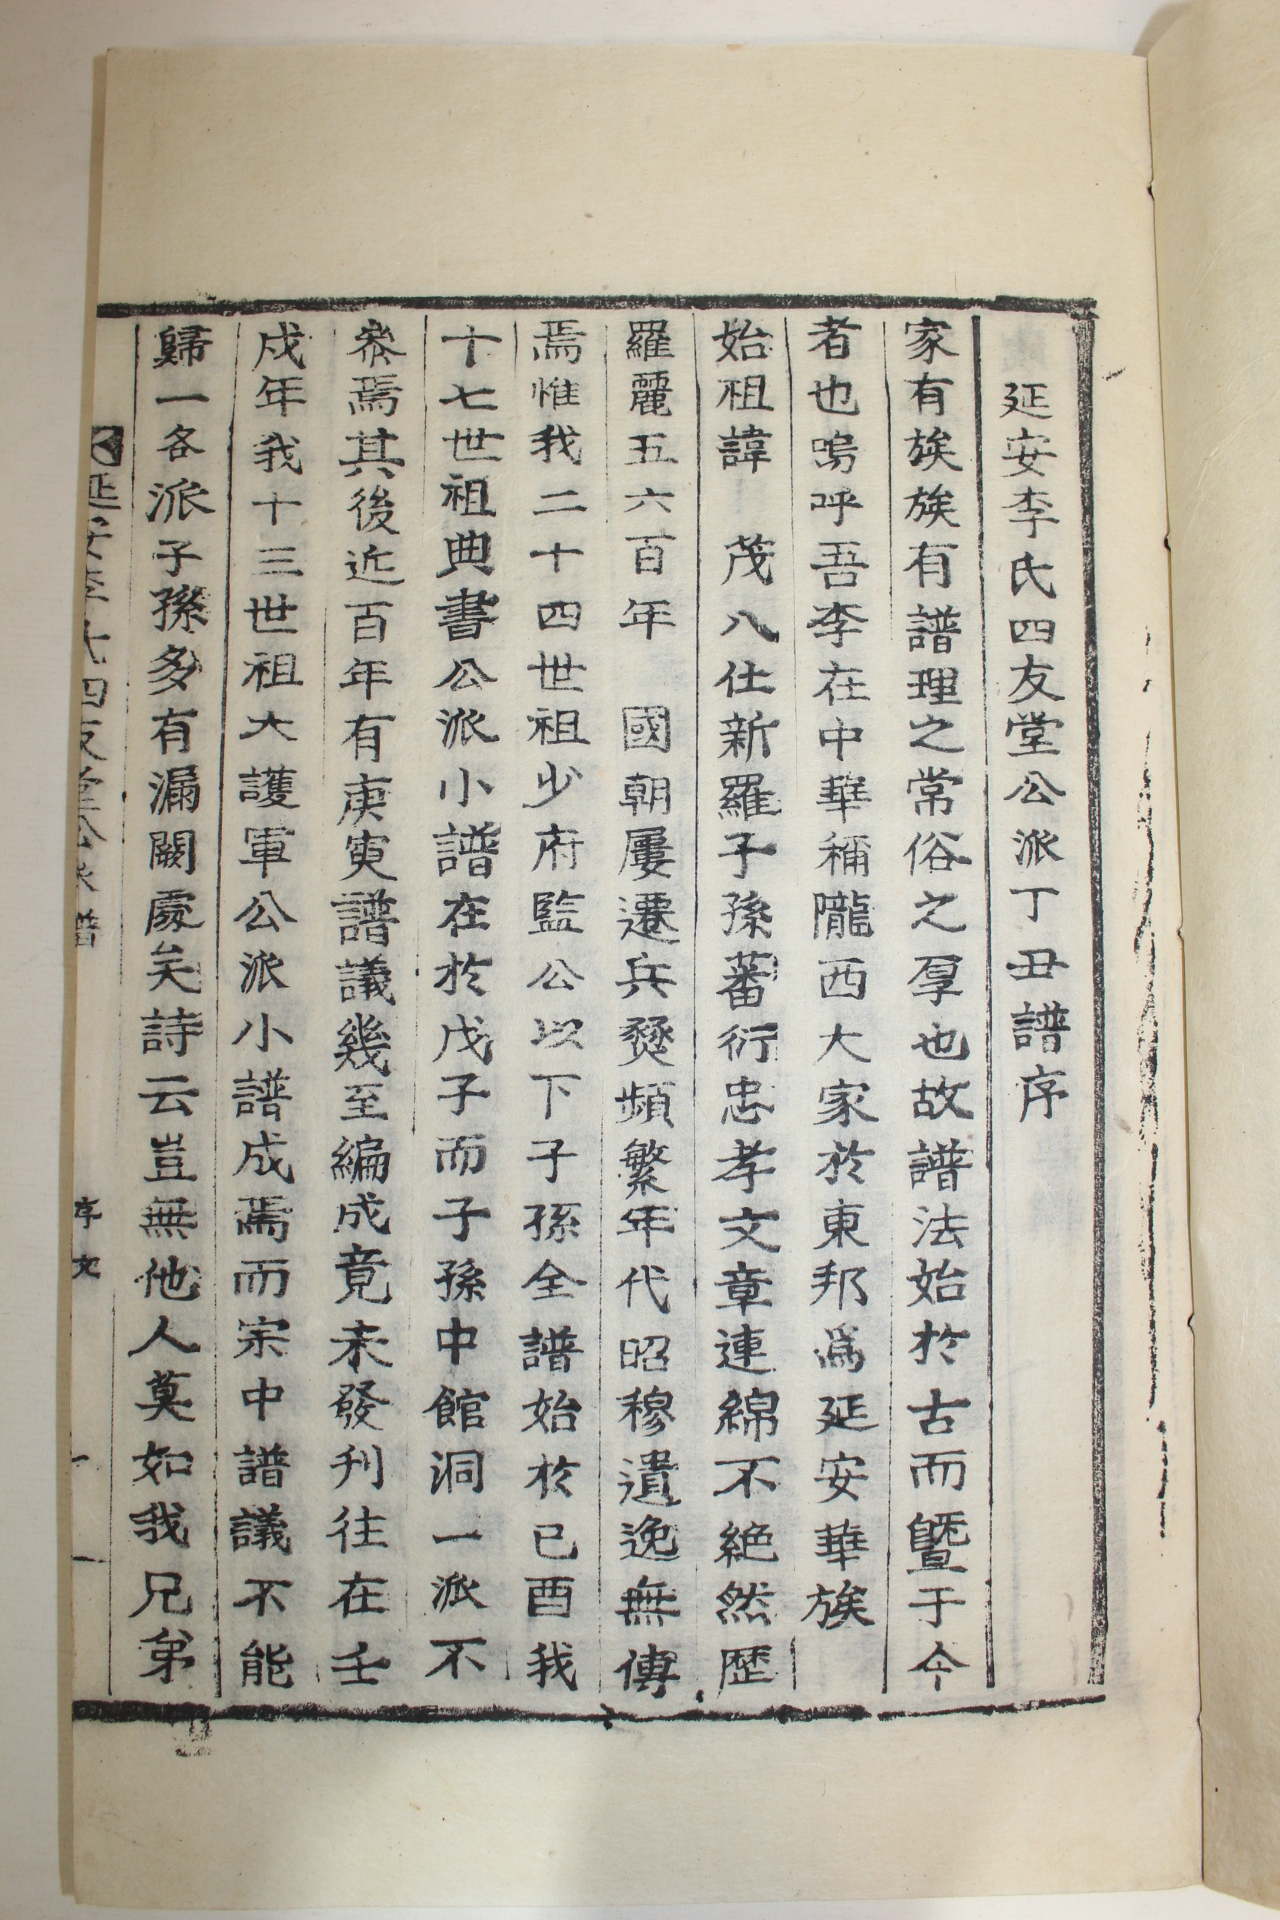 延安李氏四友堂公派丁丑譜序
家有族族有譜理之常俗之厚也故譜法始於古而曁于今
者也嗚呼吾李在中華稱隴西大家於東邦爲延安華族
始祖諱 茂八仕新羅子孫蕃衍忠孝文章連綿不絶然歷
羅麗五六百年 國朝屢遷兵燹頻繁年代昭穆遺逸無傳
焉惟我二十四世祖少府監公以下子孫全譜始於已酉我
十七世祖典書公派小譜在於戊子而子孫中館洞一派不
叅焉其後近百年有庚寅譜議幾至編成竟未發刊往在壬
戌年我十三世祖大護軍公派小譜成焉而宗中譜議不能
歸一各派子孫多有漏闕處矣詩云豈無他人莫如我兄弟
延安李氏四友堂公派譜
序文
一